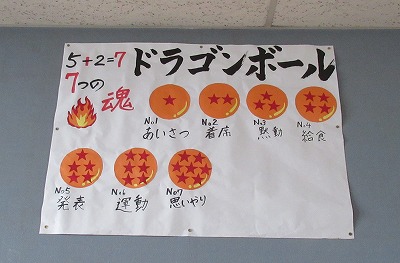 5+2=7
ドラゴンボール
7つの
魂
No.1
あいさつ
No.2
着席
No.3
黙動
No.4
給食
No.5
発表
No.6
運動
No.7
思いやり